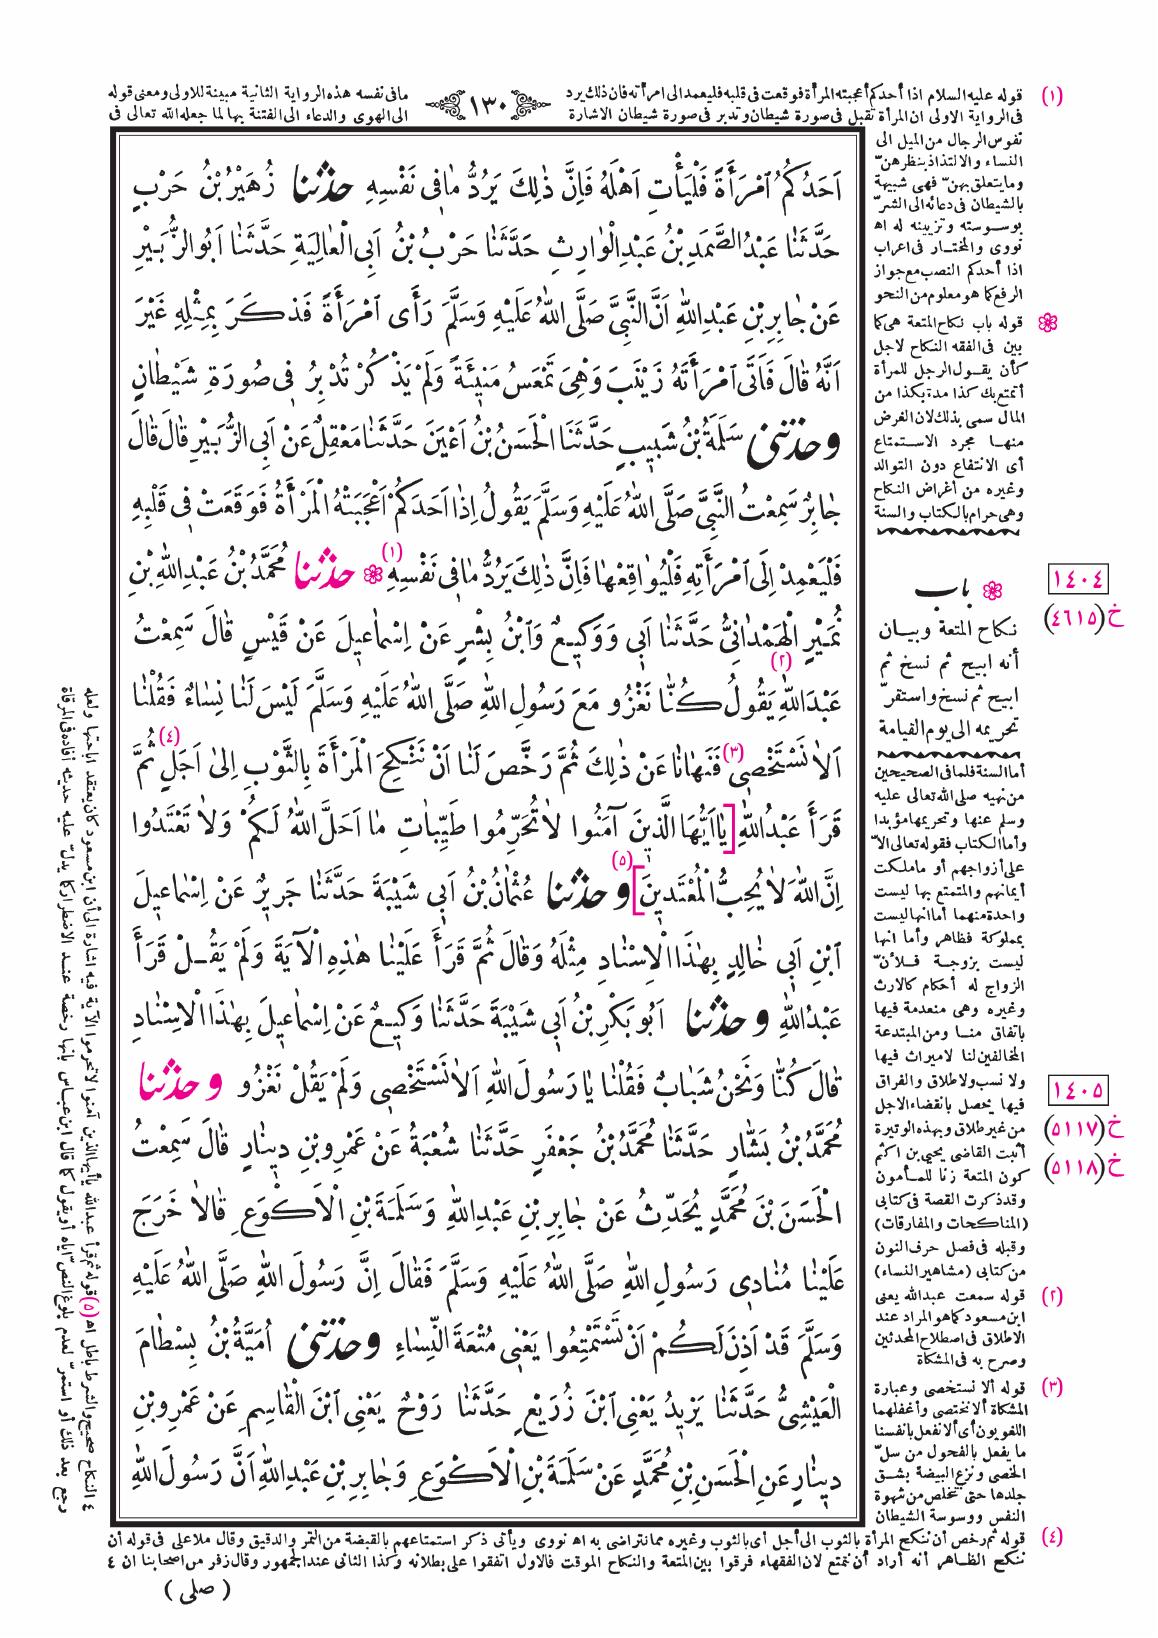 (١) قوله عليه السلام اذا أحدكم أعجبته المرأة فوقعت فى قلبه فليعمد الى امرأته فان ذلك يرد
فى الرواية الاولى ان المرأة تقبل فى صورة شيطان وتدبر فى صورة شيطان الاشارة
١٣٠
مافى نفسه هذه الرواية الثانية مبينة للاولى ومعنى قوله
الى الهوى والدعاء الى الفتنة بها لما جعله الله تعالى فى
نفوس الرجال من الميل الى
النساء والالتذاذ بنظرهنّ
وما يتعلق بهنّ فهى شبيهة
بالشيطان فى دعائه الى الشرّ
بوسوسته وتزيينه له اه
نووى والمختار فى اعراب
اذا أحدكم النصب مع جواز
الرفع كما هو معلوم من النحو
قوله باب نكاح المتعة هى كما
بين فى الفقه النكاح لاجل
كأن يقول الرجل للمرأة
أتمتع بك كذا مدة بكذا من
المال سمى بذلك لان الغرض
منها مجرد الاستمتاع
أى الانتفاع دون التوالد
وغيره من أغراض النكاح
وهى حرام بالكتاب والسنة
باب
نكاح المتعة وبيان
أنه ابيح ثم نسخ ثم
ابيح ثم نسخ واستقرّ
تحريمه الى يوم القيامة
١٤٠٤
خ (٤٦١٥)
أما السنة فلما فى الصحيحين
من نهيه صلى الله تعالى عليه
وسلم عنها وتحريمها مؤبدا
وأما الكتاب فقوله تعالى الاّ
على أزواجهم أو ماملكت
أيمانهم والمتمتع بها ليست
واحدة منهما أما انها ليست
بمملوكة فظاهر وأما انها
ليست بزوجة فلأنّ
الزواج له أحكام كالارث
وغيره وهى منعدمة فيها
باتفاق منا ومن المبتدعة
المخالفين لنا لاميراث فيها
ولا نسب ولا طلاق والفراق
فيها يحصل بانقضاء الاجل
من غير طلاق وبهذه الوتيرة
أثبت القاضى يحيى بن اكثم
كون المتعة زنا للمأمون
وقد ذكرت القصة فى كتابى
(المناكحات والمفارقات)
وقبله فى فصل حرف النون
من كتابى (مشاهير النساء)
١٤٠٥
خ (٥١١٧)
خ (٥١١٨)
(٢) قوله سمعت عبدالله يعنى
ابن مسعود كما هو المراد عند
الاطلاق فى اصطلاح المحدثين
وصرح به فى المشكاة
(٣) قوله ألا نستخصى وعبارة
المشكاة ألا نختصى وأغفلهما
اللغويون أى ألا نفعل بانفسنا
ما يفعل بالفحول من سلّ
الخصى ونزع البيضة بشق
جلدها حتى نتخلص من شهوة
النفس ووسوسة الشيطان
اَحَدُكُمُ امْرَأَةً فَلْيَأْتِ اَهْلَهُ فَاِنَّ ذٰلِكَ يَرُدُّ مٰا فِى نَفْسِهِ حدثنا زُهَيْرُ بْنُ حَرْبٍ
حَدَّثَنٰا عَبْدُ الصَّمَدِ بْنُ عَبْدِ الْوٰارِثِ حَدَّثَنٰا حَرْبُ بْنُ اَبِى الْعٰالِيَةِ حَدَّثَنٰا اَبُو الزُّبَيْرِ
عَنْ جٰابِرِ بْنِ عَبْدِ اللهِ اَنَّ النَّبِىَّ صَلَّى اللهُ عَلَيْهِ وَسَلَّمَ رَأَى امْرَأَةً فَذَكَرَ بِمِثْلِهِ غَيْرَ
اَنَّهُ قٰالَ فَاَتَى امْرَأَتَهُ زَيْنَبَ وَهِىَ تَمْعَسُ مَنِيئَةً وَلَمْ يَذْكُرْ تُدْبِرُ فِى صُورَةِ شَيْطٰانٍ
وحدثنى سَلَمَةُ بْنُ شَبِيبٍ حَدَّثَنَا الْحَسَنُ بْنُ اَعْيَنَ حَدَّثَنٰا مَعْقِلٌ عَنْ اَبِى الزُّبَيْرِ قٰالَ قٰالَ
جٰابِرٌ سَمِعْتُ النَّبِىَّ صَلَّى اللهُ عَلَيْهِ وَسَلَّمَ يَقُولُ اِذٰا اَحَدَكُمْ اَعْجَبَتْهُ الْمَرْأَةُ فَوَقَعَتْ فِى قَلْبِهِ
فَلْيَعْمِدْ اِلَى امْرَأَتِهِ فَلْيُوٰاقِعْهٰا فَاِنَّ ذٰلِكَ يَرُدُّ مٰا فِى نَفْسِهِ (١) حدثنا مُحَمَّدُ بْنُ عَبْدِ اللهِ بْنِ
نُمَيْرٍ الْهَمْدٰانِىُّ حَدَّثَنٰا اَبِى وَوَكِيعٌ وَابْنُ بِشْرٍ عَنْ اِسْمٰاعِيلَ عَنْ قَيْسٍ قٰالَ سَمِعْتُ
عَبْدَ اللهِ (٢) يَقُولُ كُنّٰا نَغْزُو مَعَ رَسُولِ اللهِ صَلَّى اللهُ عَلَيْهِ وَسَلَّمَ لَيْسَ لَنٰا نِسٰاءٌ فَقُلْنٰا
اَلاٰ نَسْتَخْصِى (٣) فَنَهٰانٰا عَنْ ذٰلِكَ ثُمَّ رَخَّصَ لَنٰا اَنْ نَنْكِحَ الْمَرْأَةَ بِالثَّوْبِ اِلىٰ اَجَلٍ (٤) ثُمَّ
قَرَأَ عَبْدُ اللهِ [يٰا اَيُّهَا الَّذِينَ آمَنُوا لاٰ تُحَرِّمُوا طَيِّبٰاتِ مٰا اَحَلَّ اللهُ لَكُمْ وَلاٰ تَعْتَدُوا
اِنَّ اللهَ لاٰ يُحِبُّ الْمُعْتَدِينَ] (٥) وحدثنا عُثْمٰانُ بْنُ اَبِى شَيْبَةَ حَدَّثَنٰا جَرِيرٌ عَنْ اِسْمٰاعِيلَ
ابْنِ اَبِى خٰالِدٍ بِهٰذَا الْاِسْنٰادِ مِثْلَهُ وَقٰالَ ثُمَّ قَرَأَ عَلَيْنٰا هٰذِهِ الْآيَةَ وَلَمْ يَقُلْ قَرَأَ
عَبْدُ اللهِ وحدثنا اَبُو بَكْرِ بْنُ اَبِى شَيْبَةَ حَدَّثَنٰا وَكِيعٌ عَنْ اِسْمٰاعِيلَ بِهٰذَا الْاِسْنٰادِ
قٰالَ كُنّٰا وَنَحْنُ شَبٰابٌ فَقُلْنٰا يٰا رَسُولَ اللهِ اَلاٰ نَسْتَخْصِى وَلَمْ يَقُلْ نَغْزُو وحدثنا
مُحَمَّدُ بْنُ بَشّٰارٍ حَدَّثَنٰا مُحَمَّدُ بْنُ جَعْفَرٍ حَدَّثَنٰا شُعْبَةُ عَنْ عَمْرِو بْنِ دِينٰارٍ قٰالَ سَمِعْتُ
الْحَسَنَ بْنَ مُحَمَّدٍ يُحَدِّثُ عَنْ جٰابِرِ بْنِ عَبْدِ اللهِ وَسَلَمَةَ بْنِ الْاَكْوَعِ قٰالاٰ خَرَجَ
عَلَيْنٰا مُنٰادِى رَسُولِ اللهِ صَلَّى اللهُ عَلَيْهِ وَسَلَّمَ فَقٰالَ اِنَّ رَسُولَ اللهِ صَلَّى اللهُ عَلَيْهِ
وَسَلَّمَ قَدْ اَذِنَ لَكُمْ اَنْ تَسْتَمْتِعُوا يَعْنِى مُتْعَةَ النِّسٰاءِ وحدثنى اُمَيَّةُ بْنُ بِسْطٰامَ
الْعَيْشِىُّ حَدَّثَنٰا يَزِيدُ يَعْنِى ابْنَ زُرَيْعٍ حَدَّثَنٰا رَوْحٌ يَعْنِى ابْنَ الْقٰاسِمِ عَنْ عَمْرِو بْنِ
دِينٰارٍ عَنِ الْحَسَنِ بْنِ مُحَمَّدٍ عَنْ سَلَمَةَ بْنِ الْاَكْوَعِ وَجٰابِرِ بْنِ عَبْدِ اللهِ اَنَّ رَسُولَ اللهِ
(٤) قوله ثم رخص أن ننكح المرأة بالثوب الى أجل أى بالثوب وغيره مما نتراضى به اه نووى ويأتى ذكر استمتاعهم بالقبضة من التمر والدقيق وقال ملا على فى قوله أن
ننكح الظاهر أنه أراد أن نتمتع لان الفقهاء فرقوا بين المتعة والنكاح الموقت فالاول اتفقوا على بطلانه وكذا الثانى عند الجمهور وقال زفر من اصحابنا ان ٤
٤ النكاح صحيح والشرط باطل اه (٥) قوله ثم قرأ عبدالله ياأيها الذين آمنوا لاتحرموا الآية فيه اشارة الى أن ابن مسعود كان يعتقد اباحتها ولعله
رجع بعد ذلك أو استمرّ لعدم بلوغ النصّ اياه أو يقول كما قال ابن عباس بانها رخصة عند الاضطرار كما يدلّ عليه حديثه أفاده فى المرقاة
( صلى )